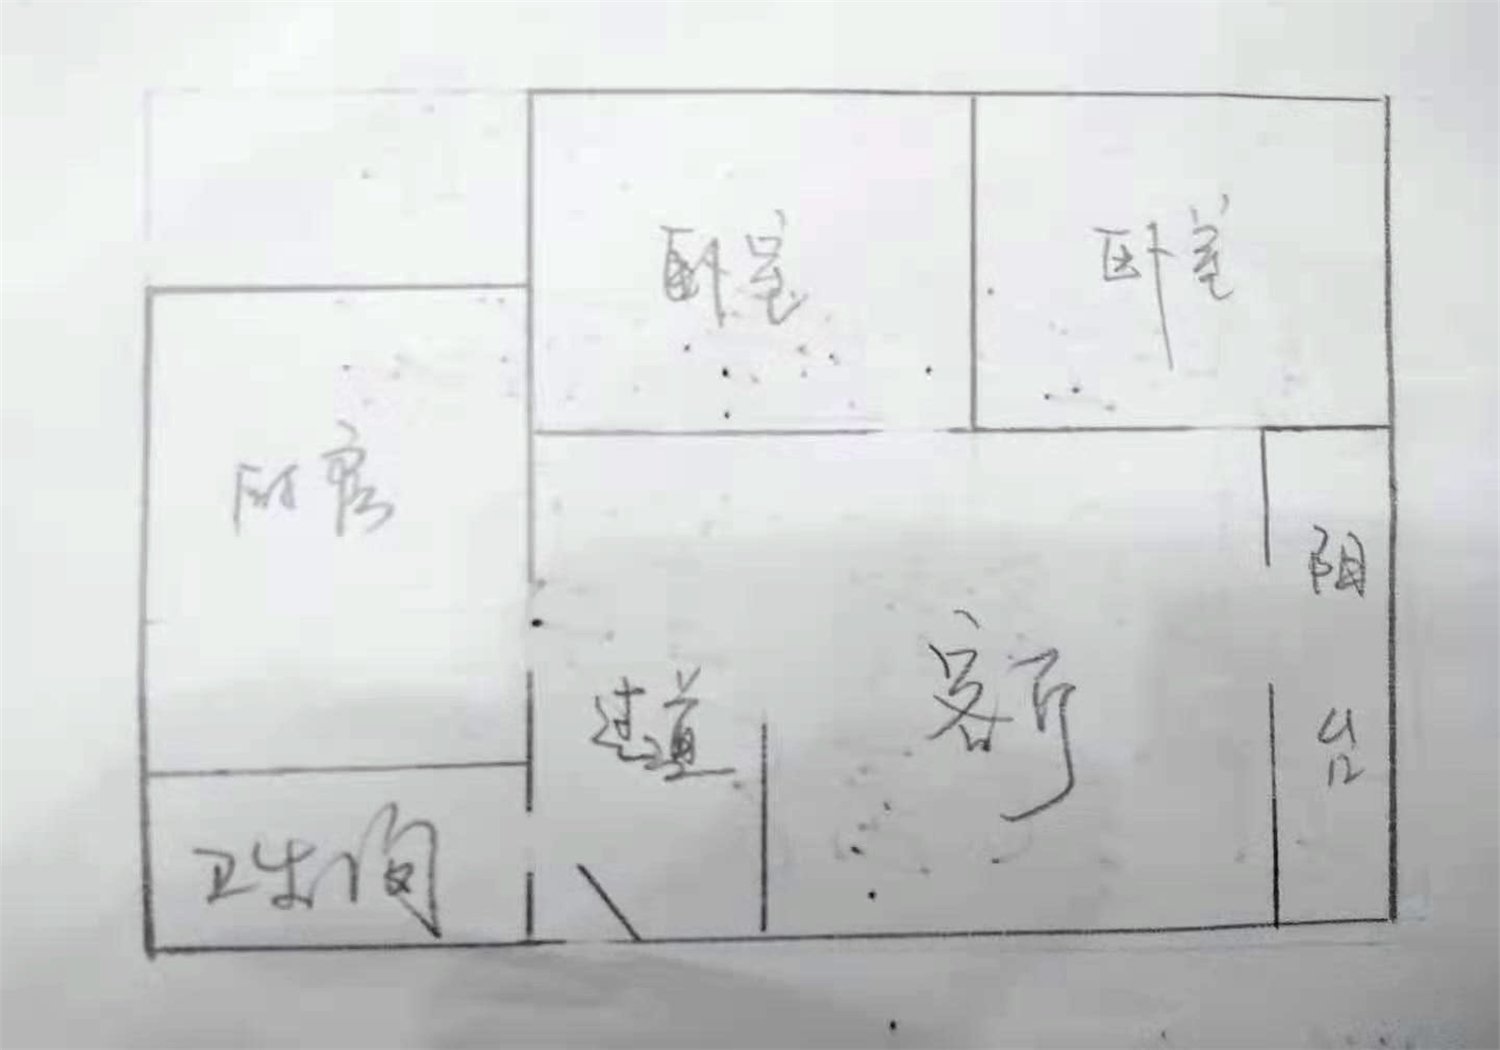 卧室
卧室
厨房
阳台
过道
客厅
卫生间